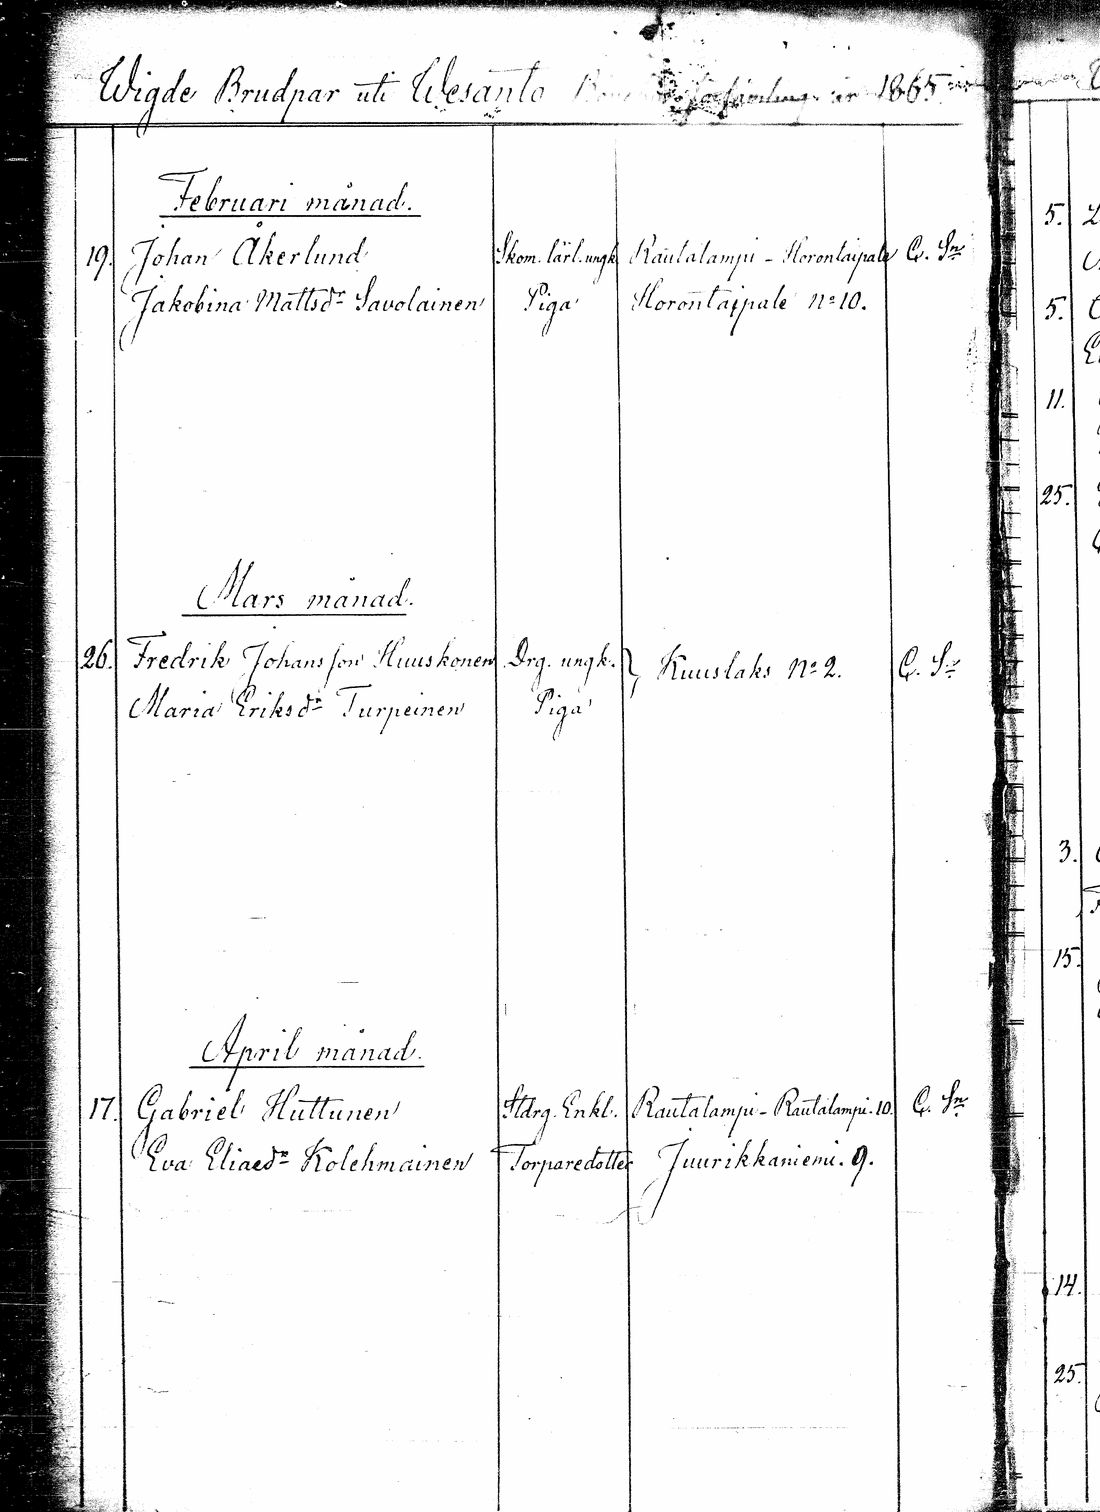 Wigde Brudpar uti Wesanto församling år 1865
Februari månad.
19. Johan Åkerlund Skom. lärl. ungk. Rautalampi - Horontaipale C. Sn
Jakobina Mattsdr Savolainen Piga Horontaipale No 10.
Mars månad.
26. Fredrik Johansson Huuskonen Drg. ungk. } Kuuslaks No 2. C. Sn
Maria Eriksdr Turpeinen Piga
April månad.
17. Gabriel Huttunen Stdrg. Enkl. Rautalampi - Rautalampi. 10. C. Sn
Eva Eliaedr Kolehmainen Torparedotter Juurikkaniemi. 9.
5.
5.
11.
25.
3.
15.
14.
25.